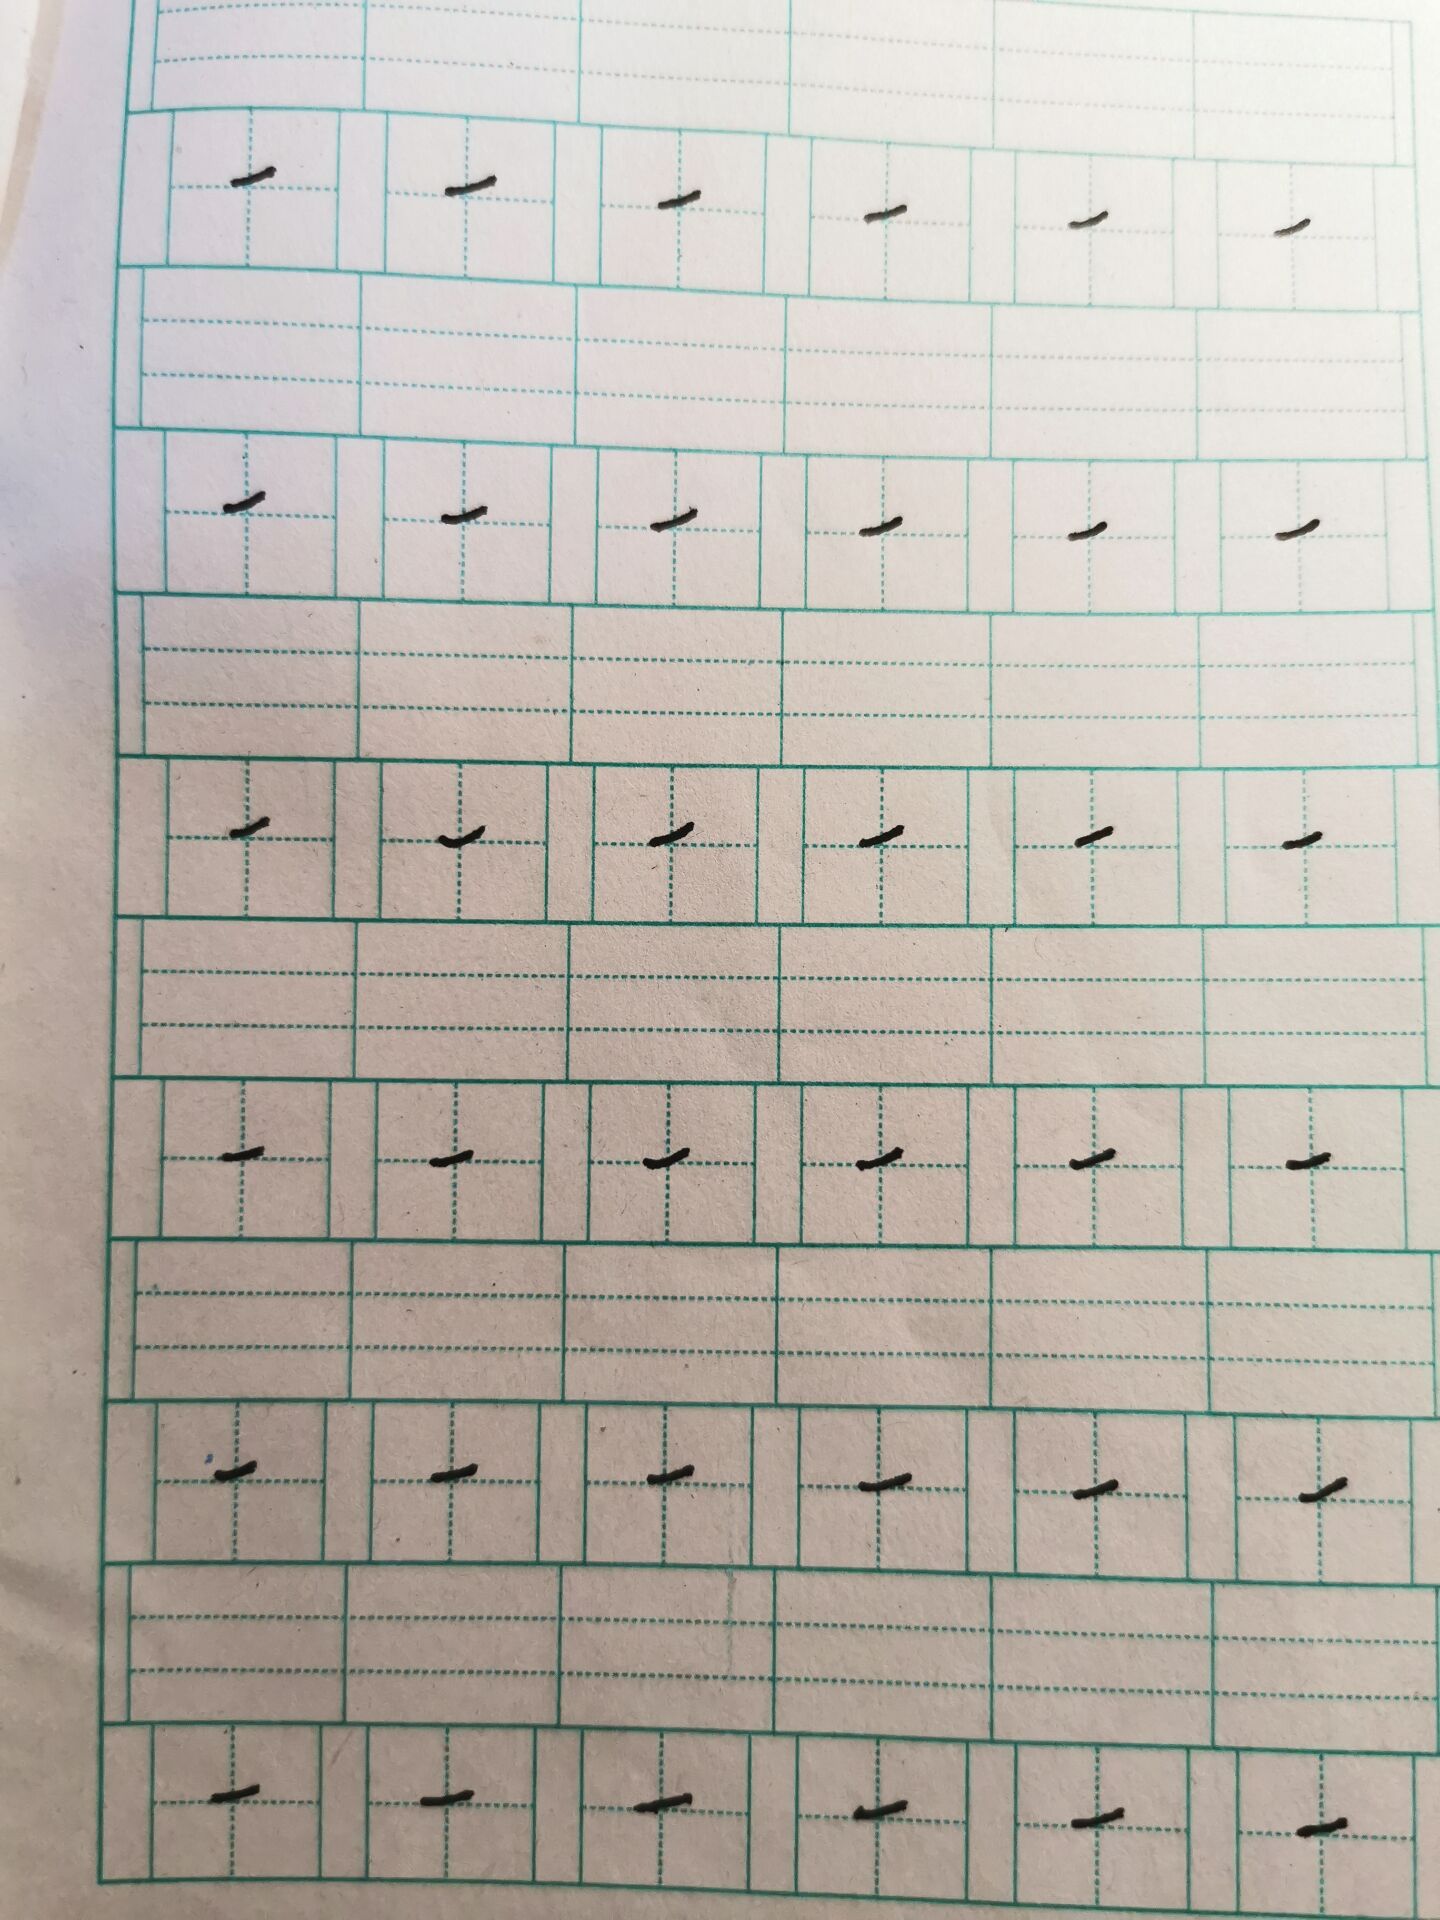 一 一 一 一 一 一
一 一 一 一 一 一
一 一 一 一 一 一
一 一 一 一 一 一
一 一 一 一 一 一
一 一 一 一 一 一